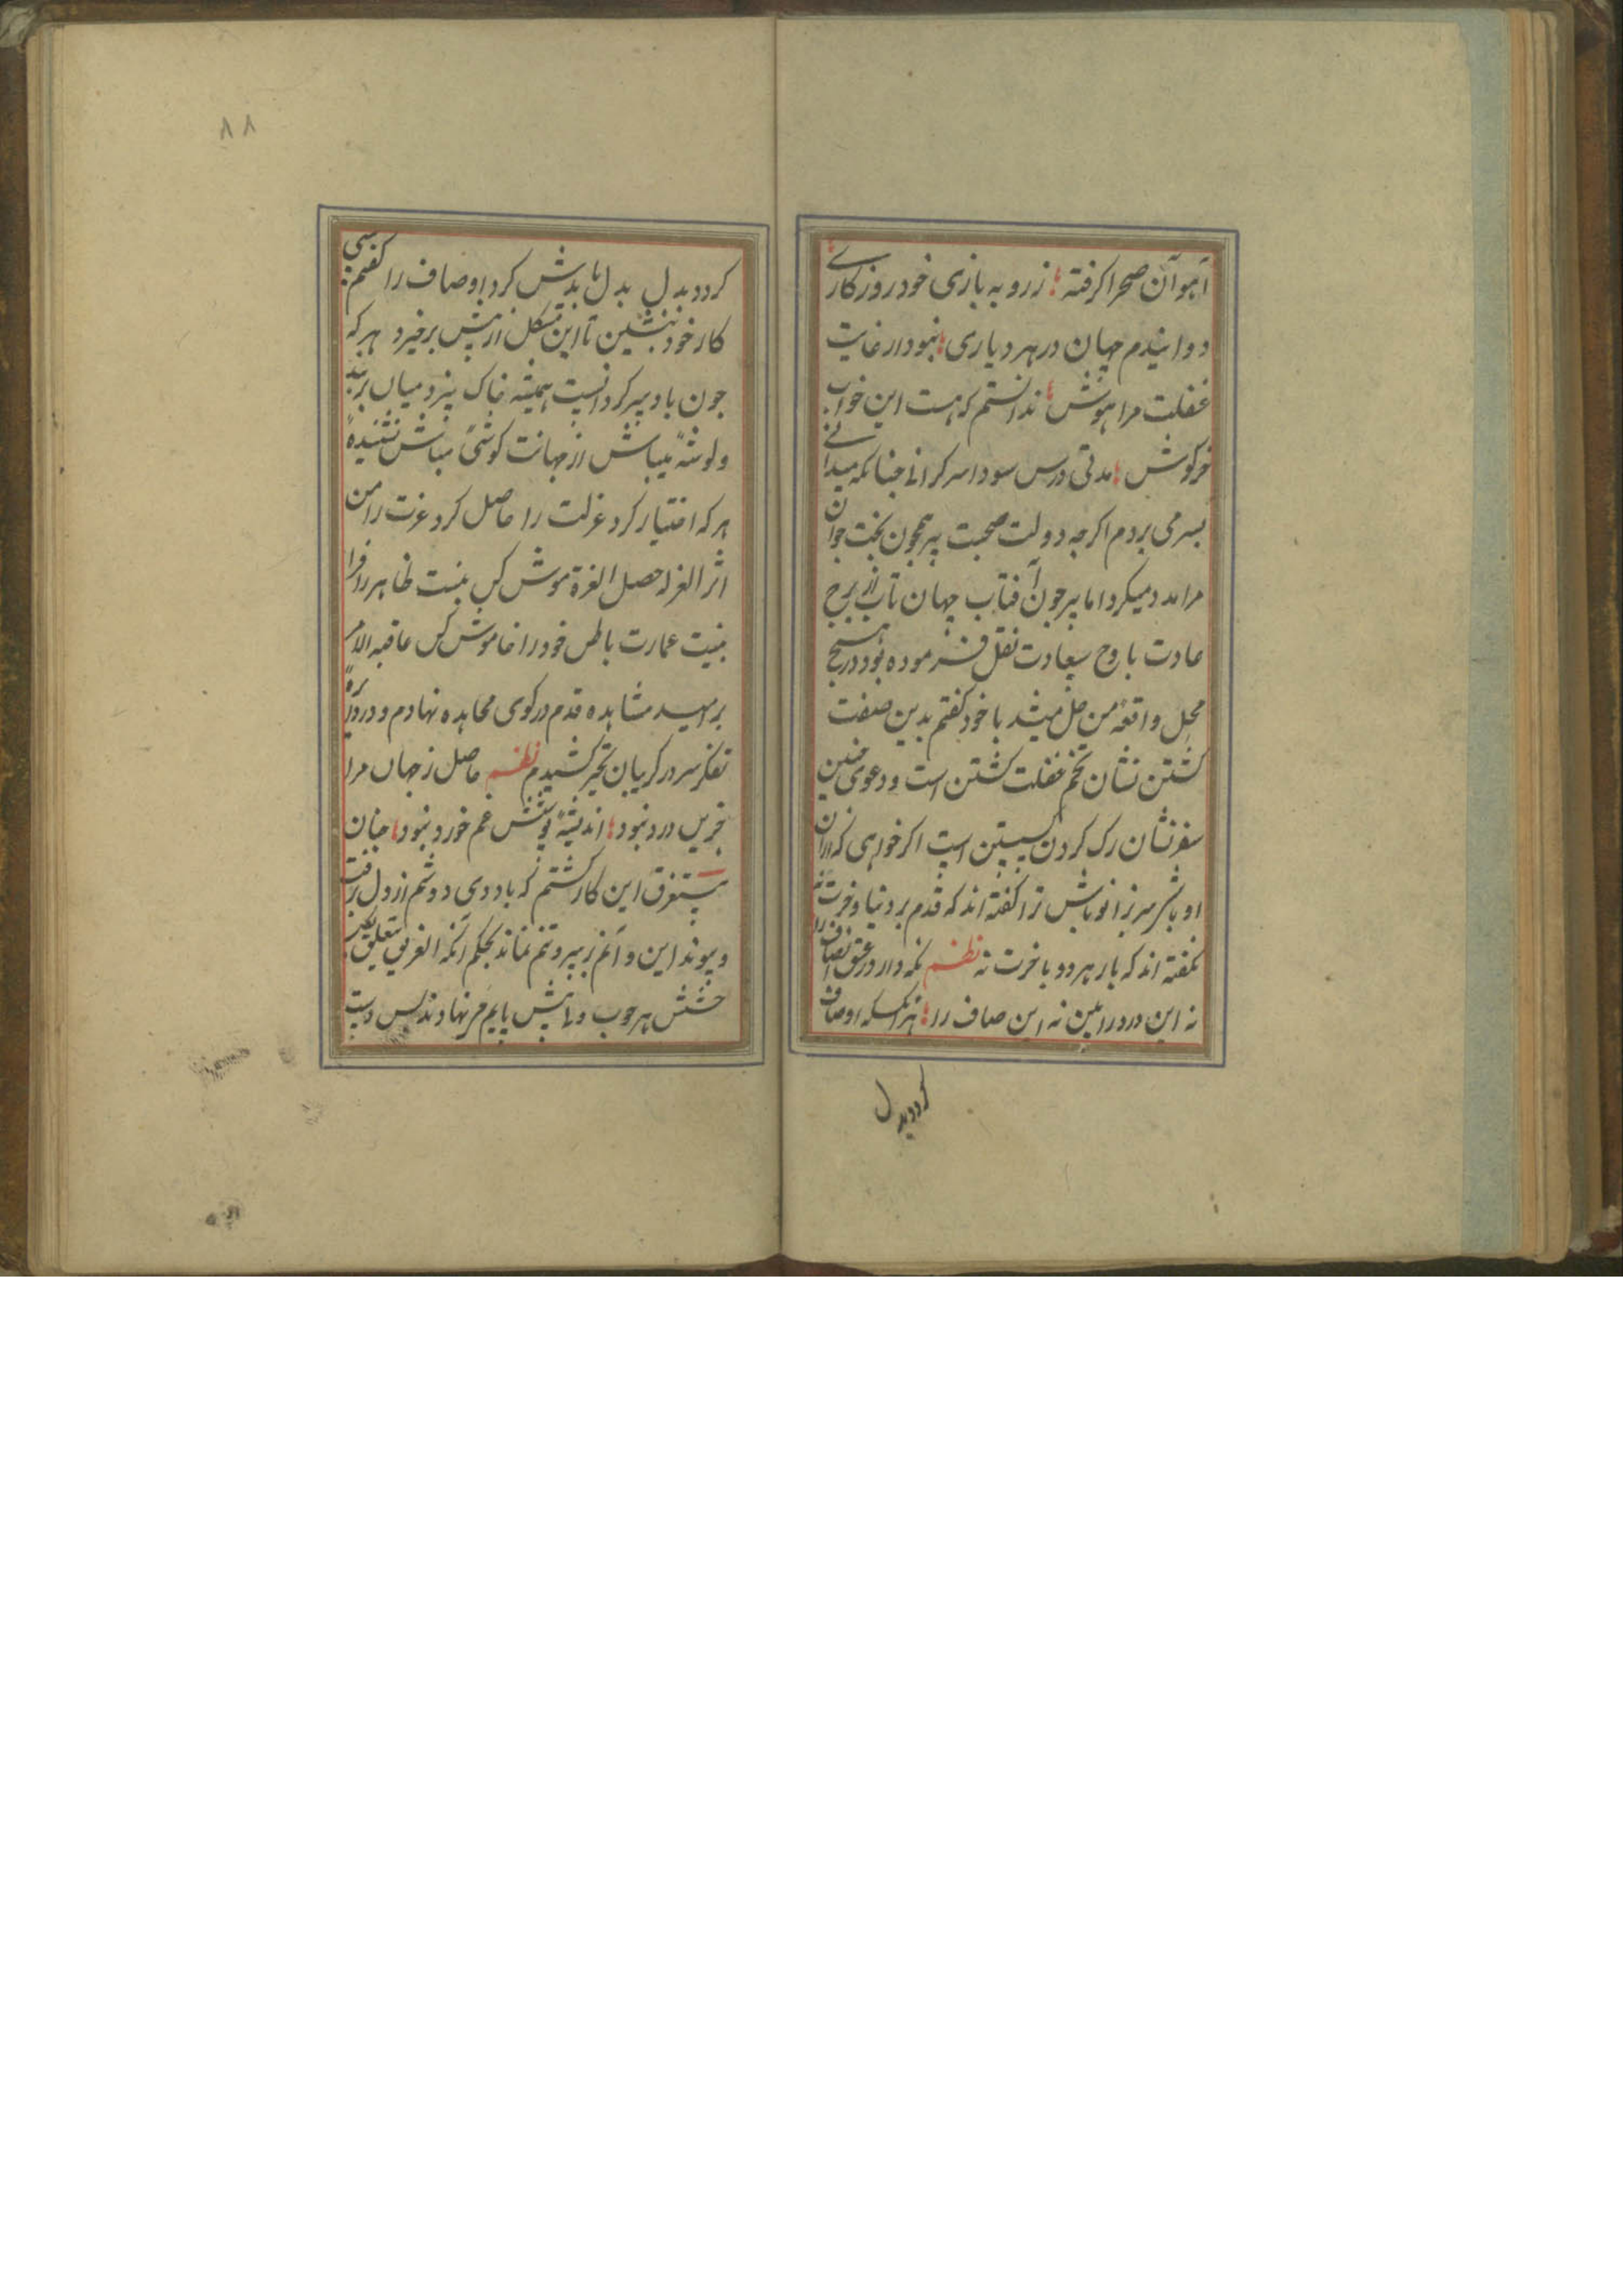 آهو آن صحرا کرفته زروبه بازی خود روزکاری
دوانیدم جهان در هر دیاری نبود از غایت
غفلت مرا هوش ندانستم که هست این خواب
خرکوش مدتی درس سودا سر کرانی چنانکه میدانی
بسر می بردم اکرچه دولت صحبت پیر همچون بخت جوان
مرا مدد میکرد اما پیر چون آفتاب جهان تاب از برج
عادت با روح سعادت نقل فرموده بود در هیچ
محل واقعهٔ من حل میشد با خود کفتم بدین صفت
کشتن نشان تخم غفلت کشتن است و دعوی چنین
سفر نشان رک کردن است اکر خواهی که در آن
او باش سر ترا کفته اند که قدم بر دنیا و آخرت نه
نکفته اند که بار هر دو با خرت نه نظم نکه دار در عشق انصاف را
نه این درد را بین نه این صاف را هر آنکسکه اوصاف
کرددبدل
کرددبدل بدل با بدش کرد اوصاف را کفتم
کار خود بنشین تا این مشکل از پیش برخیزد هر که
چون باد هرزه کرد نیست همیشه خاک بیزد میان بربند
ولوشهٔ میباش از جهانت کوشهٔ مباش نشنیدهٔ
هر که اختیار کرد عزلت را حاصل کرد عزت را من
اثر العزله حصل العزة موش کس نیست ظاهر را فرا
بنیت عمارت باطن خود را خاموش کن عاقبه الامر
بر امید مشاهده قدم در کوی مجاهده نهادم و در
تفکر سر در کریبان تحیر کشیدم نظم حاصل ز جهان مرا
جزین درد نبود اندیشهٔ غم خورد نبود چنان
مستغرق این کار کشتم که یاد دی دوشم از دل برفت
و پیوند این و آنم ز پیر و تنم نماند بحکم آنکه الغریق یتعلق بکل
حشیش هر چوب و پایم فرنهادند پس دست
۸۸